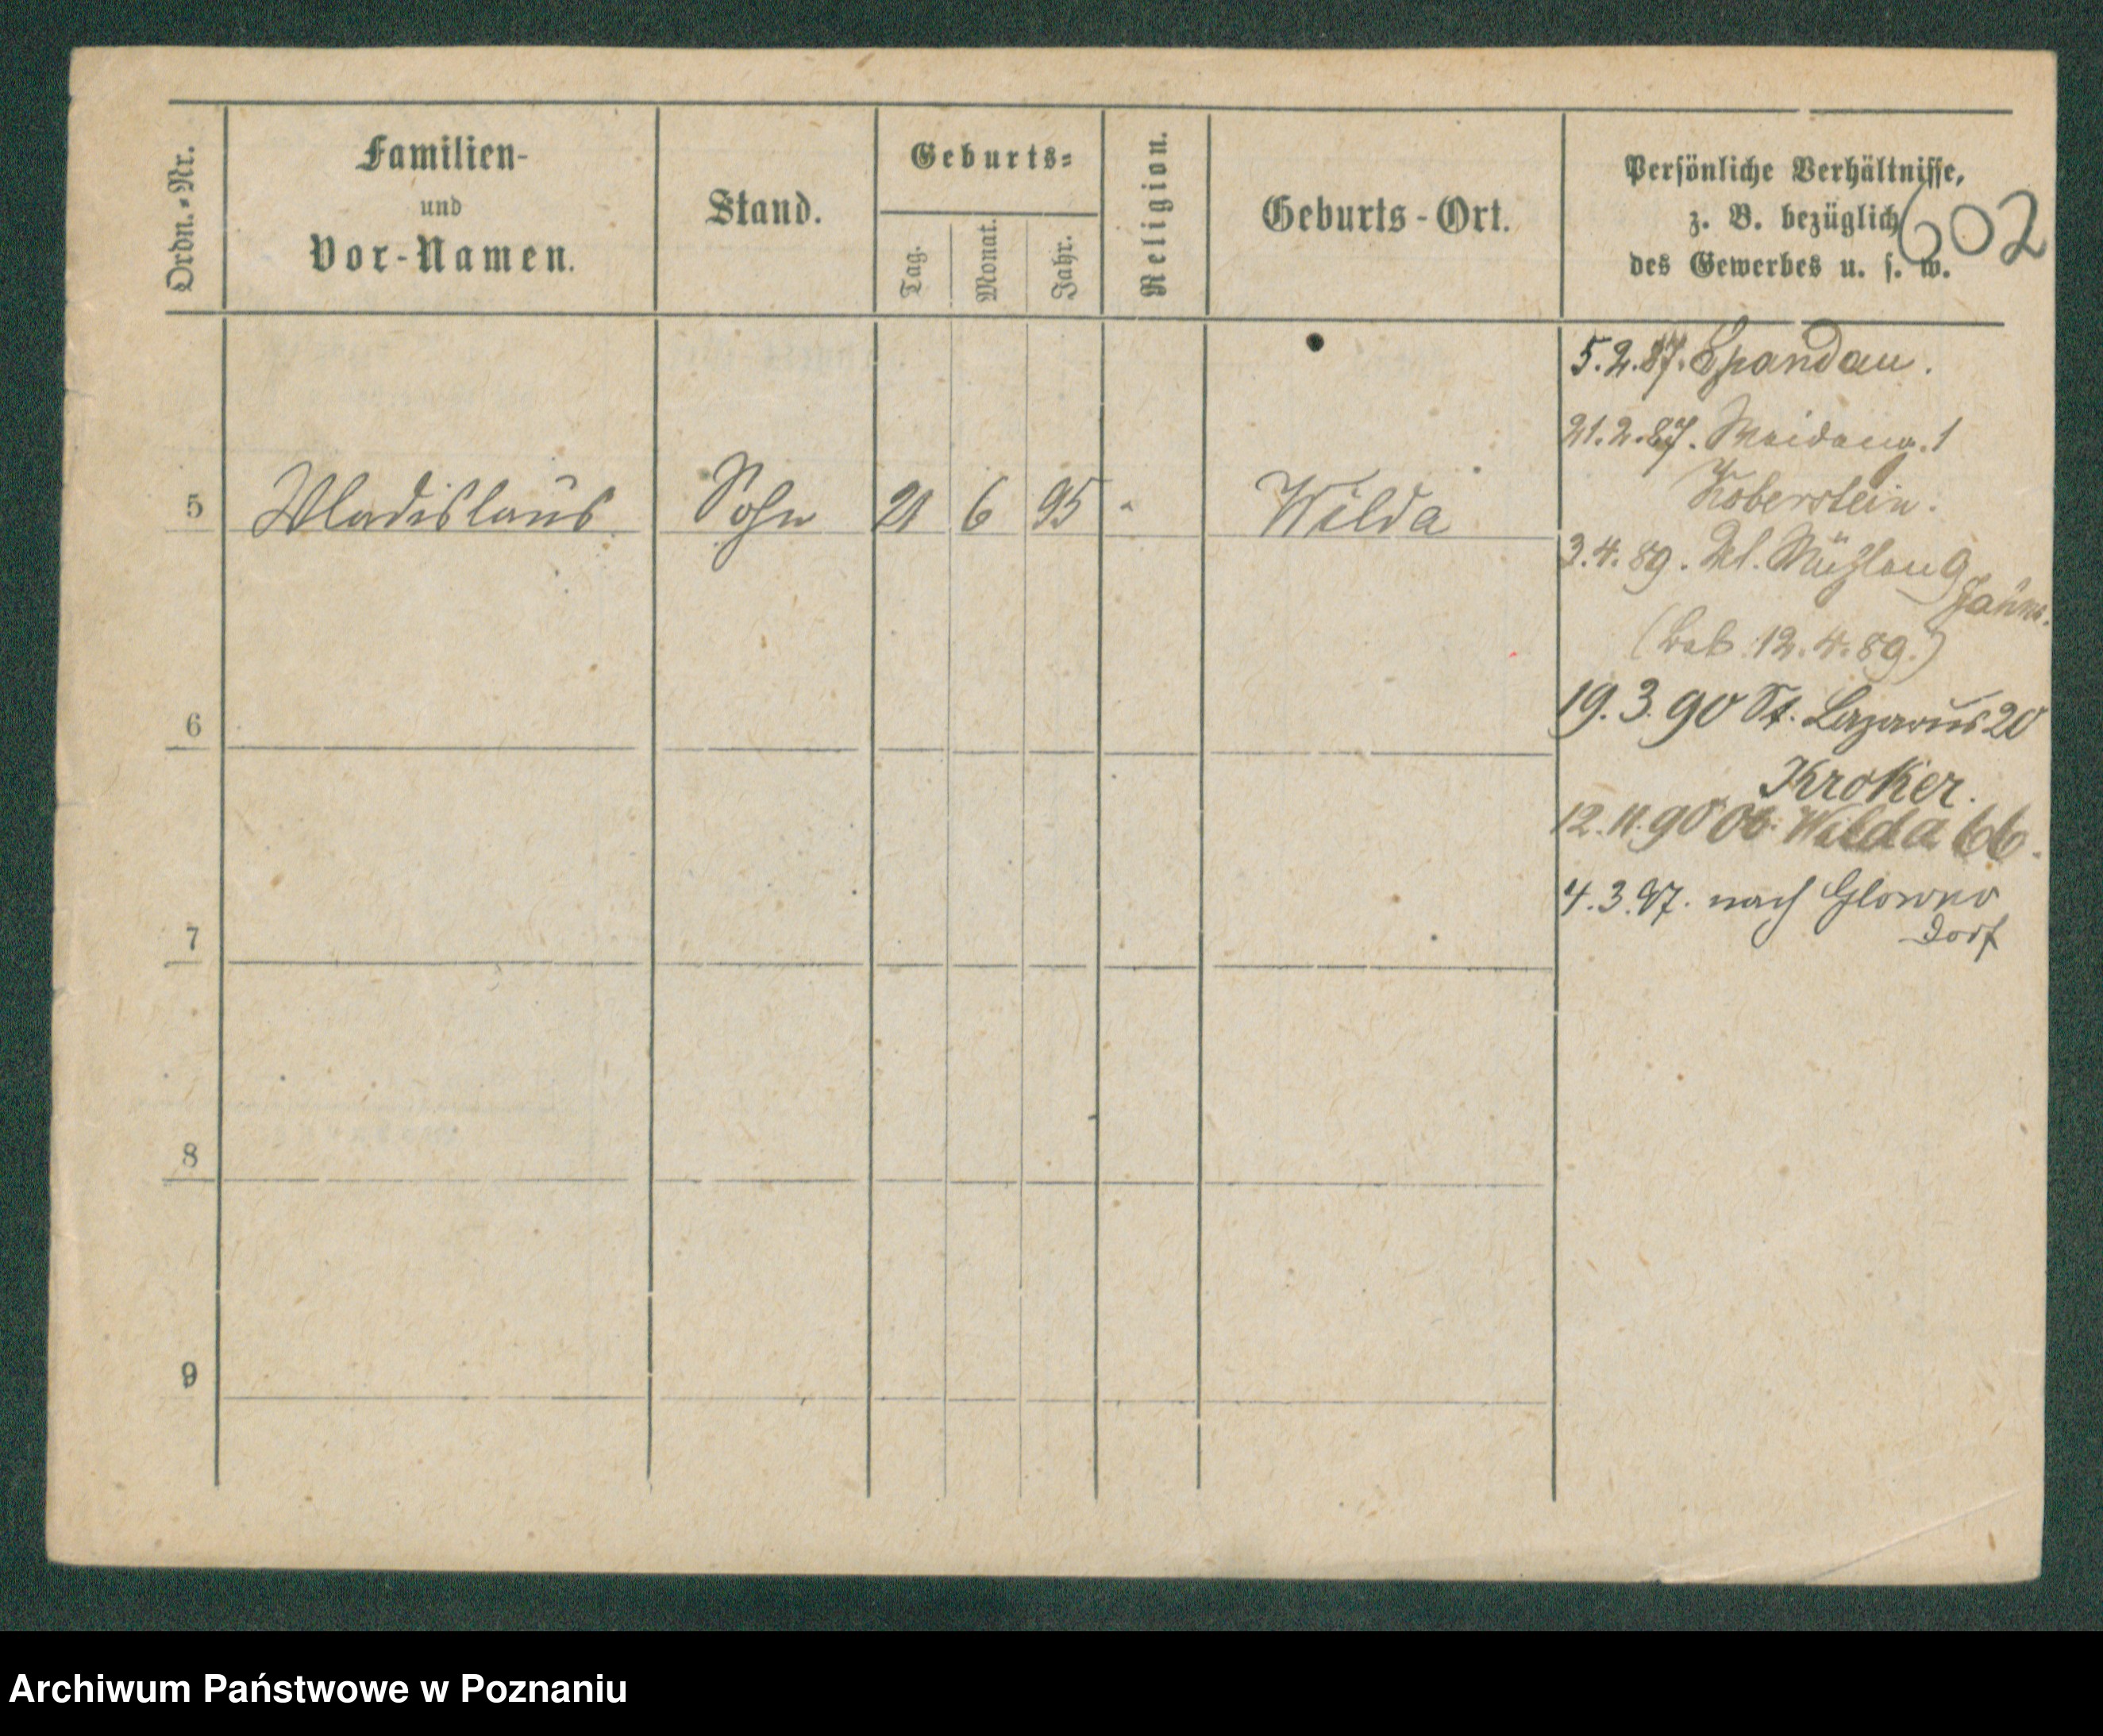 Ordn.-Nr.
Familien-
und
Vor-Namen.
Stand.
Geburts-
Tag.
Monat.
Jahr.
Religion.
Geburts-Ort.
Persönliche Verhältnisse,
z. B. bezüglich
des Gewerbes u. s. w.
602
5 Wladislaus Sohn 21 6 95 - Wilda
6
7
8
9
5.2.87. Spandau.
21.2.87. 1
Koberstein.
3.4.89. Kl.
( 12.4.89.)
19.3.90 St. Lazarus 20
Kroker.
12.11.90 Ob. Wilda 66.
4.3.97. nach Glowno
Dorf
Archiwum Państwowe w Poznaniu